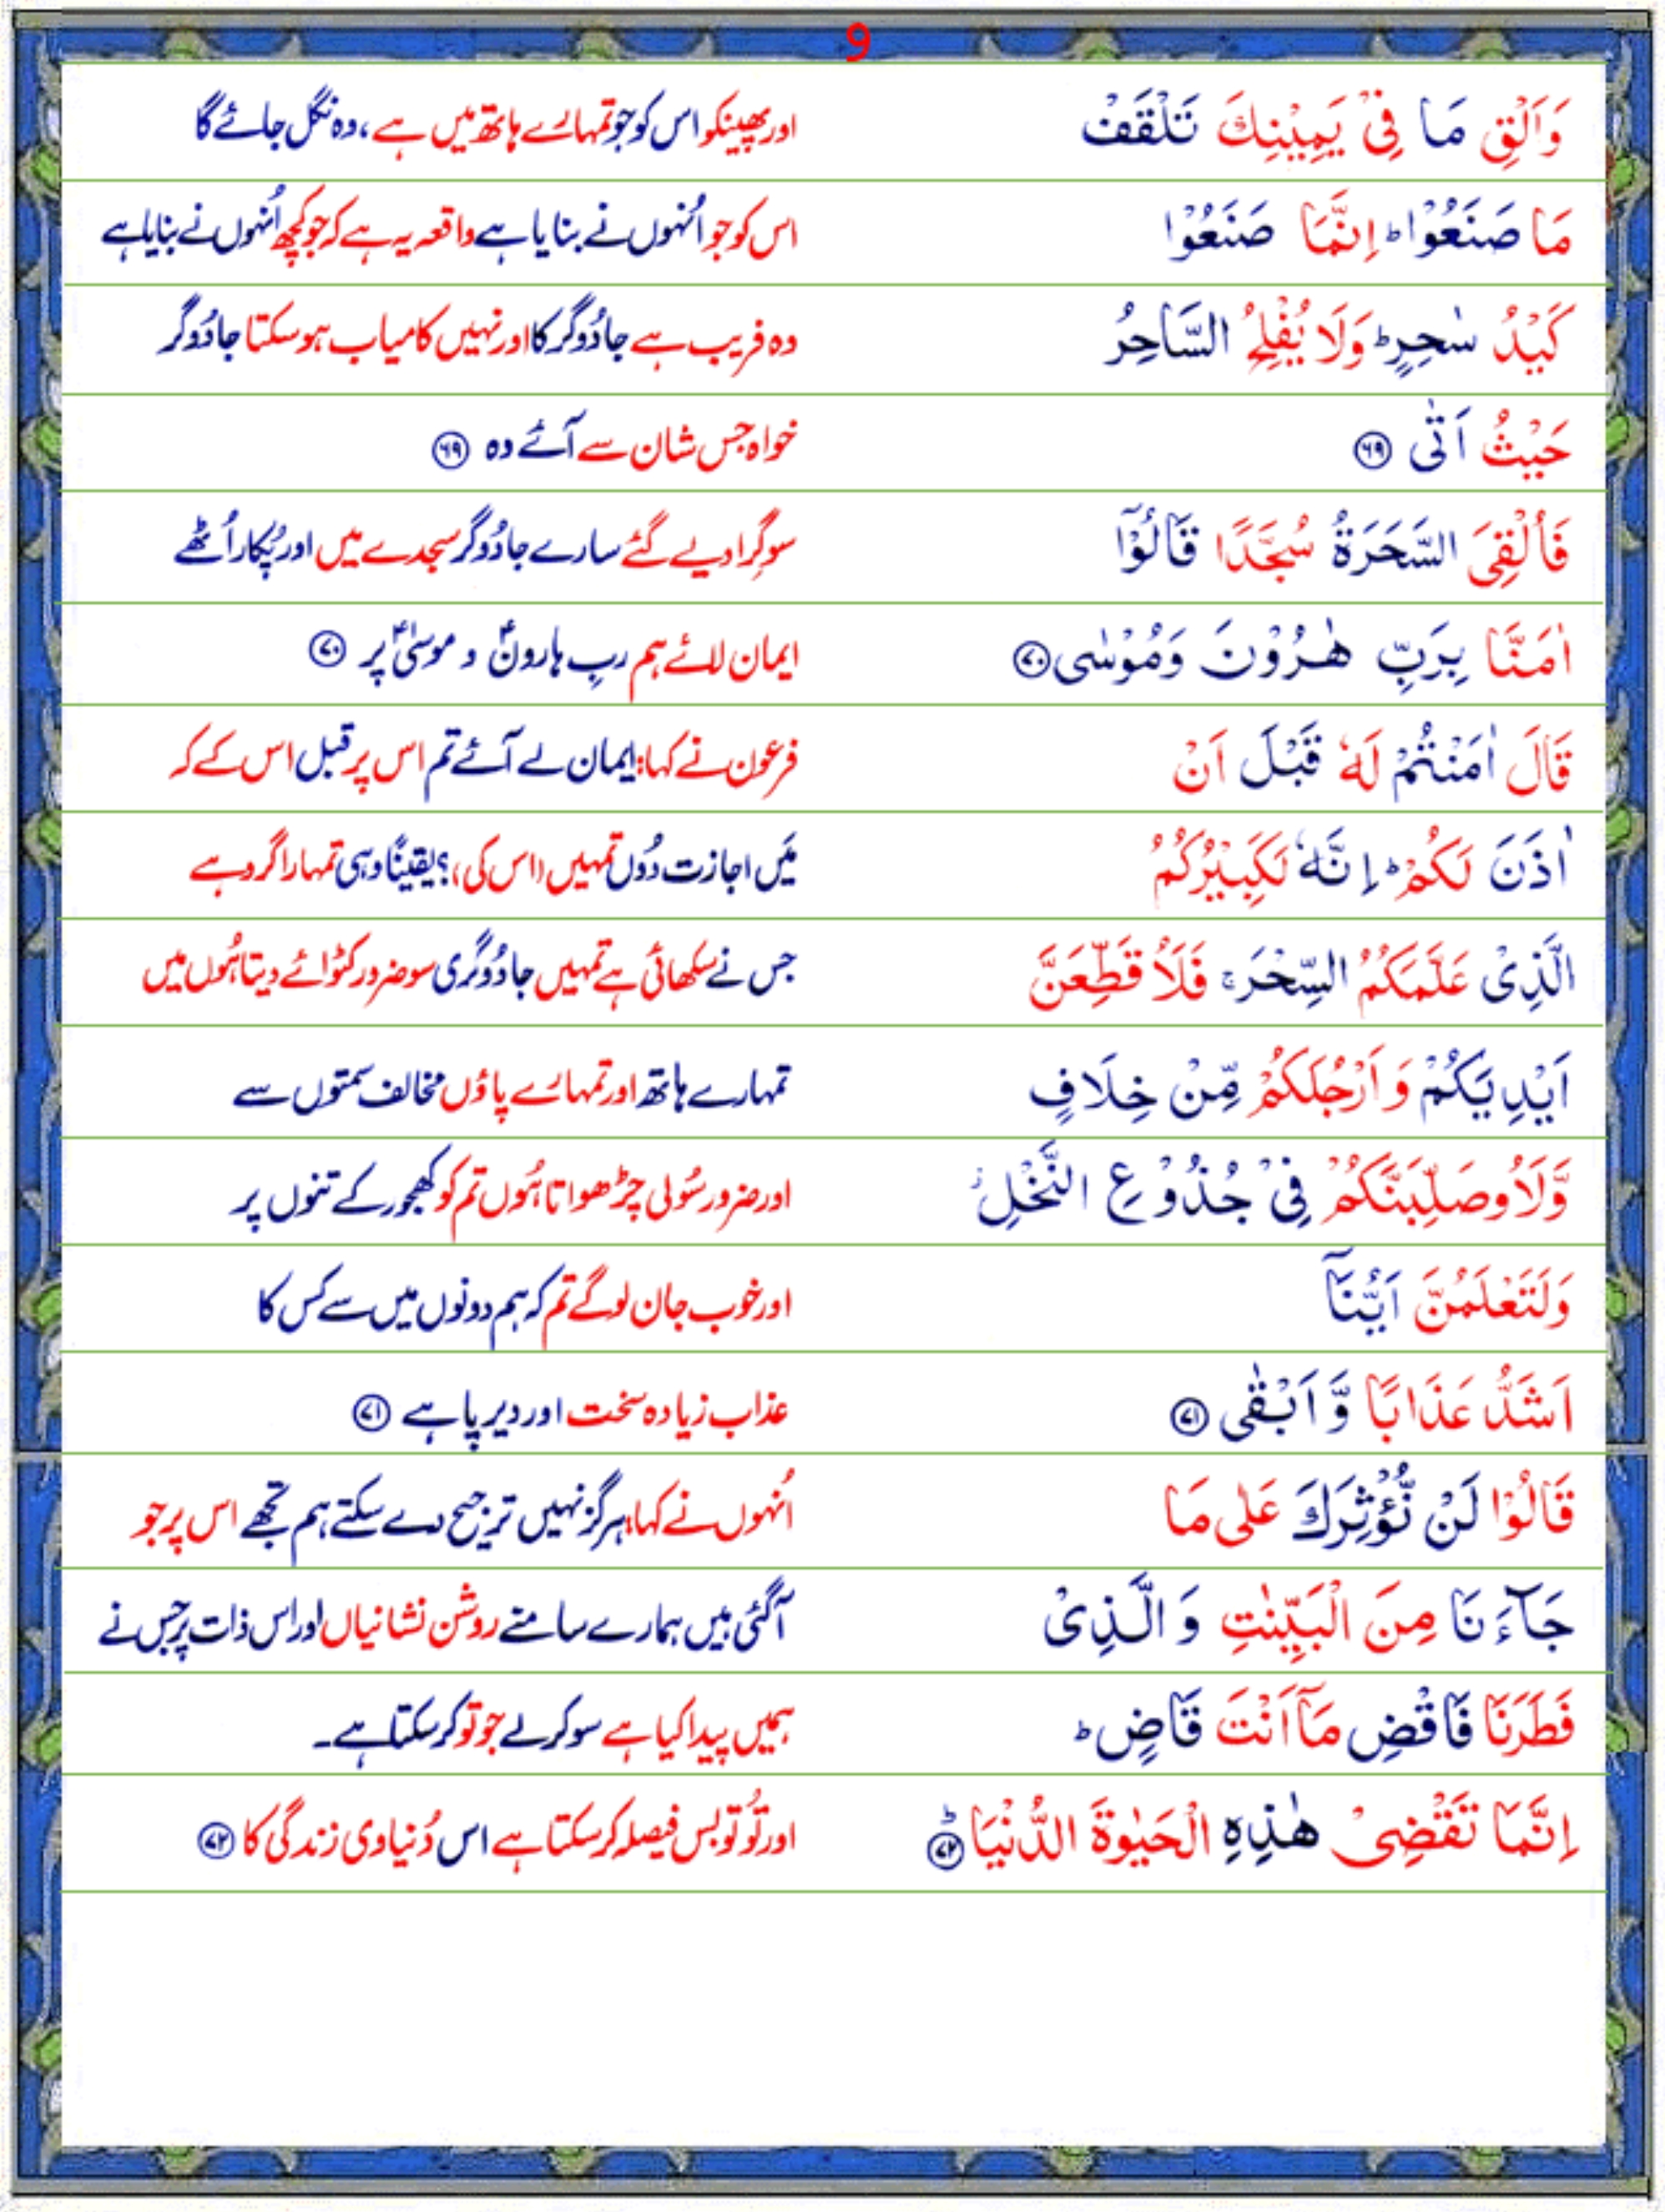 9
وَاَلْقِ مَا فِیْ یَمِیْنِكَ تَلْقَفْ اور پھینکو اس کو جو تمہارے ہاتھ میں ہے، وہ نگل جائے گا
مَا صَنَعُوْا ؕ اِنَّمَا صَنَعُوْا اس کو جو اُنہوں نے بنایا ہے واقعہ یہ ہے کہ جو کچھ اُنہوں نے بنایا ہے
كَیْدُ سٰحِرٍ ؕ وَلَا یُفْلِحُ السَّاحِرُ وہ فریب ہے جادُوگر کا اور نہیں کامیاب ہو سکتا جادُوگر
حَیْثُ اَتٰی ۶۹ خواہ جس شان سے آئے وہ ۶۹
فَاُلْقِیَ السَّحَرَةُ سُجَّدًا قَالُوْۤا سو گِرا دیے گئے سارے جادُوگر سجدے میں اور پُکار اُٹھے
اٰمَنَّا بِرَبِّ هٰرُوْنَ وَمُوْسٰی ۷۰ ایمان لائے ہم ربِ ہارونؑ و موسٰیؑ پر ۷۰
قَالَ اٰمَنْتُمْ لَهٗ قَبْلَ اَنْ فرعون نے کہا: ایمان لے آئے تم اس پر قبل اس کے کہ
اٰذَنَ لَكُمْ ؕ اِنَّهٗ لَكَبِیْرُكُمُ مَیں اجازت دُوں تمہیں (اس کی)؟ یقینًا وہی تمہارا گرو ہے
الَّذِیْ عَلَّمَكُمُ السِّحْرَ ۚ فَلَاُقَطِّعَنَّ جس نے سکھائی ہے تمہیں جادُوگری سو ضرور کٹوائے دیتا ہُوں میں
اَیْدِیَكُمْ وَاَرْجُلَكُمْ مِّنْ خِلَافٍ تمہارے ہاتھ اور تمہارے پاؤں مخالف سمتوں سے
وَّلَاُوصَلِّبَنَّكُمْ فِیْ جُذُوْعِ النَّخْلِ ؗ اور ضرور سُولی چڑھواتا ہُوں تم کو کھجور کے تنوں پر
وَلَتَعْلَمُنَّ اَیُّنَاۤ اور خوب جان لو گے تم کہ ہم دونوں میں سے کس کا
اَشَدُّ عَذَابًا وَّاَبْقٰی ۷۱ عذاب زیادہ سخت اور دیرپا ہے ۷۱
قَالُوْا لَنْ نُّؤْثِرَكَ عَلٰی مَا اُنہوں نے کہا: ہرگز نہیں ترجیح دے سکتے ہم تجھے اس پر جو
جَآءَنَا مِنَ الْبَیِّنٰتِ وَالَّذِیْ آگئی ہیں ہمارے سامنے روشن نشانیاں اور اس ذات پر جس نے
فَطَرَنَا فَاقْضِ مَاۤ اَنْتَ قَاضٍ ؕ ہمیں پیدا کیا ہے سو کر لے جو تو کر سکتا ہے۔
اِنَّمَا تَقْضِیْ هٰذِهِ الْحَیٰوةَ الدُّنْیَا ؕ ۷۲ اور تُو تو بس فیصلہ کر سکتا ہے اس دُنیاوی زندگی کا ۷۲